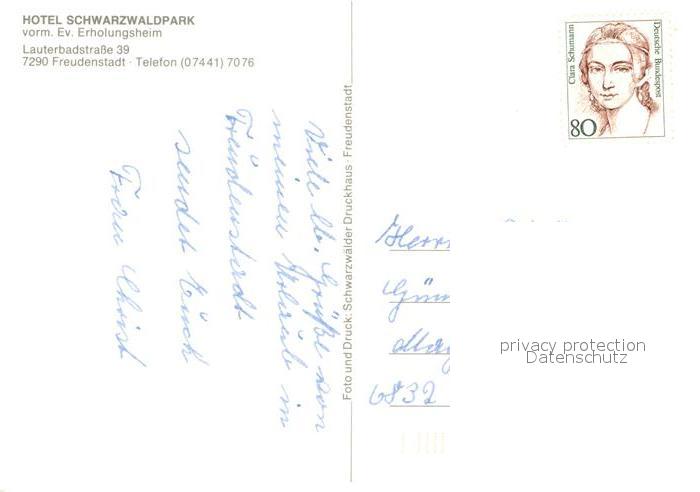 HOTEL SCHWARZWALDPARK
vorm. Ev. Erholungsheim
Lauterbadstraße 39
7290 Freudenstadt · Telefon (07441) 7076
Viele lb. Grüße von
meinem Urlaub in
Freudenstadt
sendet Euch
Frau Christ
Foto und Druck: Schwarzwälder Druckhaus · Freudenstadt
Clara Schumann
Deutsche Bundespost
80
Herrn
6832
privacy protection
Datenschutz